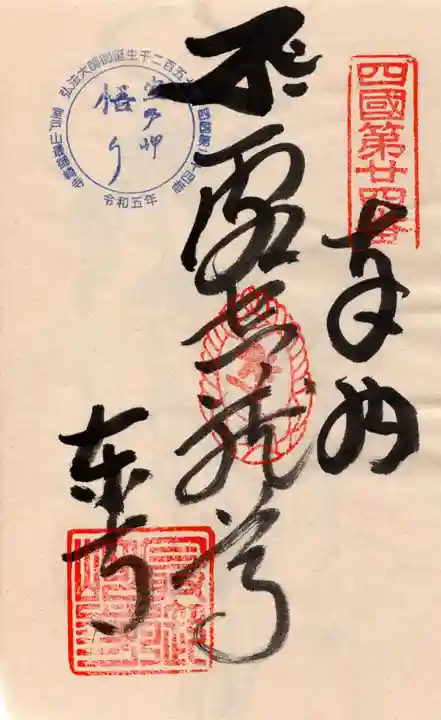 四國第廿四番
奉納
虚空蔵尊
東寺
弘法大師御誕生千二百五十年
四国第二十四番
室戸山最御崎寺
令和五年
室戸岬
悟り